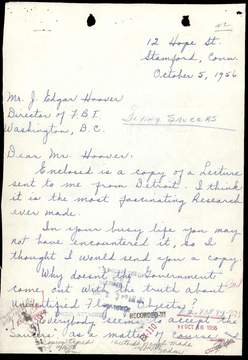 12 Hope St.
Stamford, Conn.
October 5, 1956
Mr. J. Edgar Hoover
Director of F.B.I.
Washington, D.C.
FLYING SAUCERS
Dear Mr. Hoover:
Enclosed is a copy of a Lecture
sent to me from Detroit. I think
it is the most fascinating Research
ever made.
In your busy life you may
not have encountered it, so I
thought I would send you a copy
Why doesn't the Government
come out with the truth about
Unidentified Flying Objects?
Everybody seems
RECORDED
11 OCT 1956
matter course